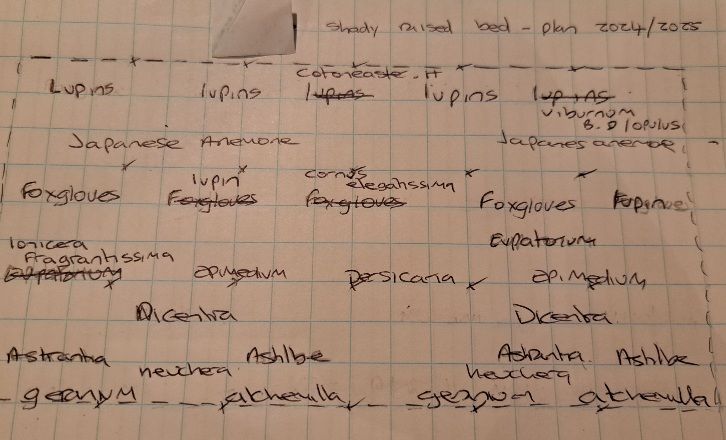 shady raised bed - plan 2024/2025
cotoneaster. H
Lupins lupins lupins lupins lupins
viburnum
B.D lopulus
Japanese Anemone Japanes anemoe
lupin cornus
elegatissima
Foxgloves Foxgloves foxgloves Foxgloves
Eupatorium
lonicera
fragrantissima
Eupatorium epimedium Persicaria epimedium
Dicentra Dicentra
Astrantia Ashlbe Astranta. Ashlbe
heuchera heuchera
geranum alchemilla geranum alchemulla